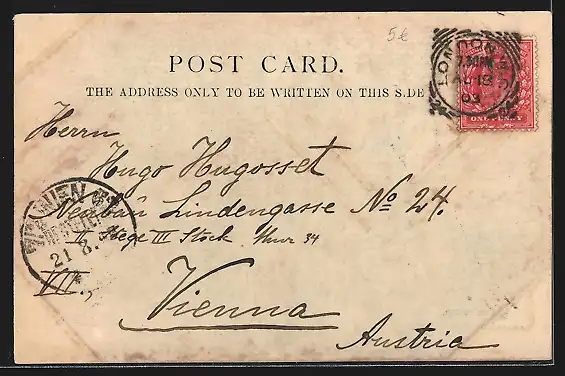 5€
POST CARD.
THE ADDRESS ONLY TO BE WRITTEN ON THIS SIDE
LONDON
7.30PM
AU 18
03
ONE PENNY
Herrn
Hugo Hugosset
Neubau Lindengasse No 24.
II Stiege III Stock Thür 34
VII.,
Vienna
Austria
WIEN
21 8